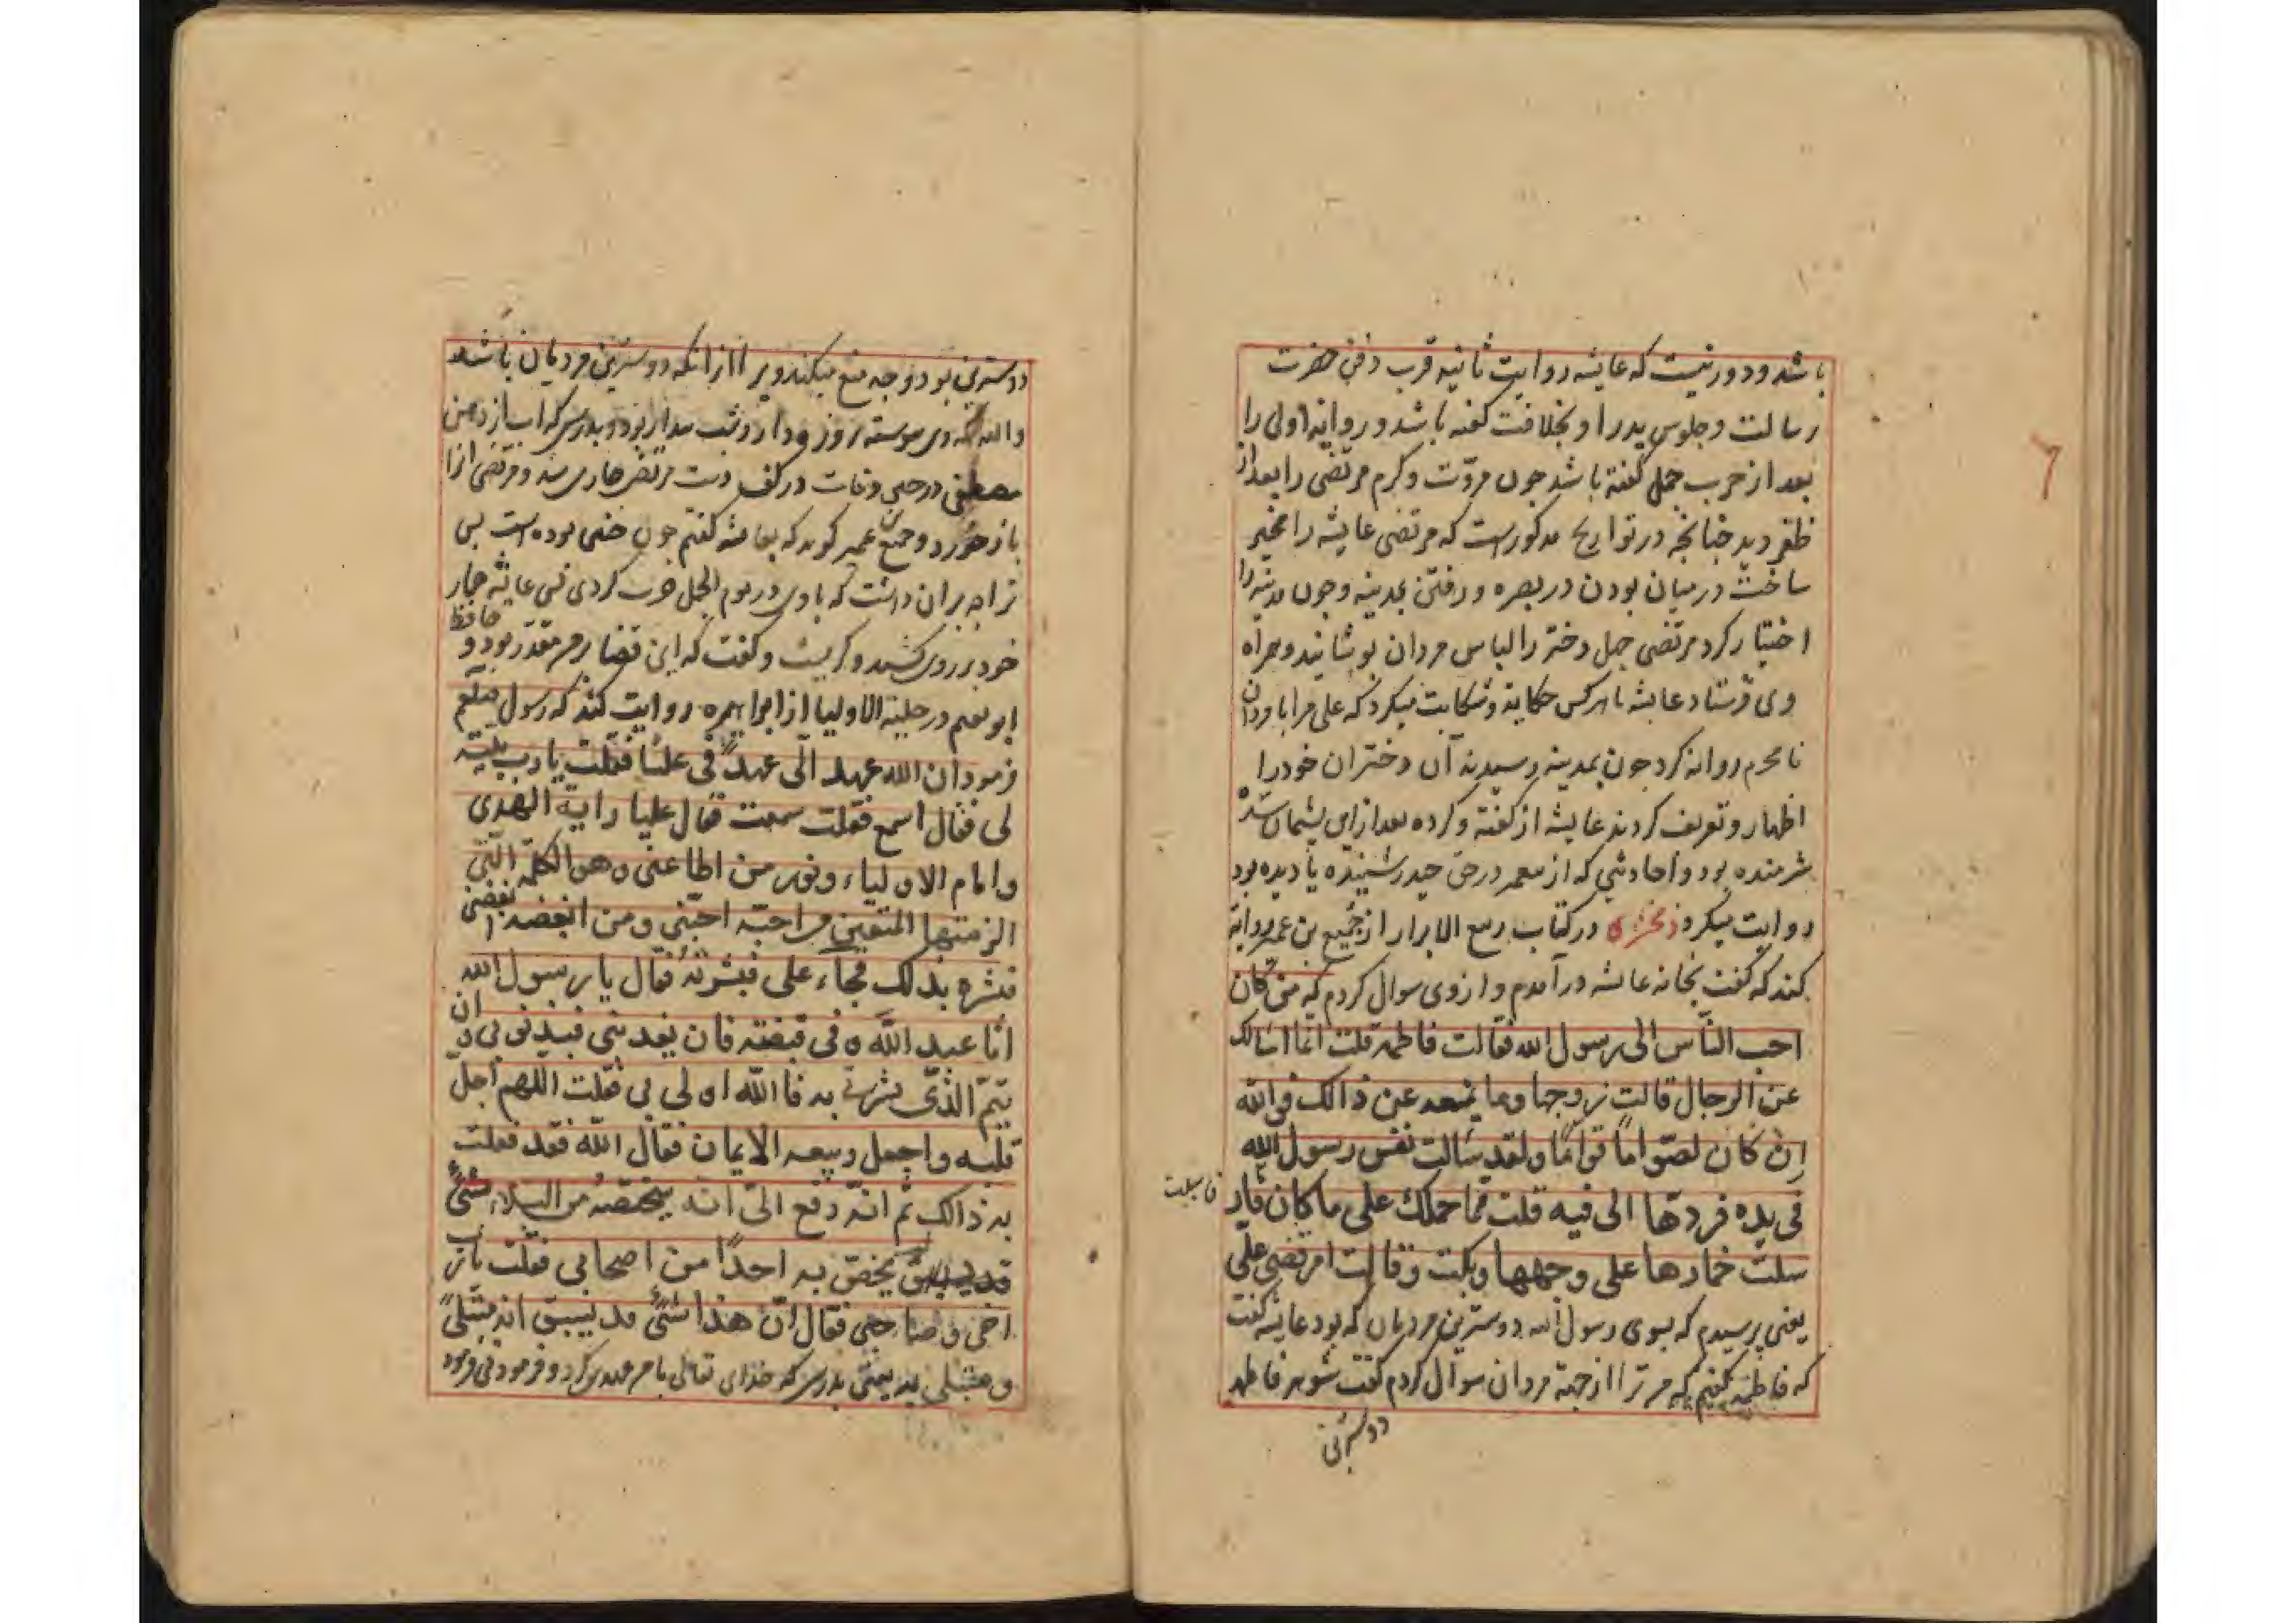 باشد و دور نیست که عایشه روایت ثانیه قرب دفن حضرت
رسالت و جلوس پدر او بخلافت گفته باشد و روایة اولی را
بعد از حرب جمل گفته باشد چون مروّت و کرم مرتضی را بعد از
ظفر دید چنانچه در تواریخ مذکورست که مرتضی عایشه را مخیر
ساخت در میان بودن در بصره و رفتن بمدینه و چون مدینه را
اختیار کرد مرتضی چهل دختر را لباس مردان پوشانید و همراه
وی فرستاد عایشه با هر کس حکایة و شکایت میکرد که علی مرا با مردان
نامحرم روانه کرد چون بمدینه رسیدند آن دختران خود را
اظهار و تعریف کردند عایشه از گفته و کرده بعد از این پشیمان شده
شرمنده بود و احادیثی که از پیغمبر در حق حیدر شنیده یا دیده بود
روایت میکرد زمخشری در کتاب ربیع الابرار از جُمیع بن عمیر روایة
کند که گفت بخانه عائشه در آمدم و از وی سوال کردم که من کان
احب النّاس الی رسول الله فقالت فاطمه قلت انما اسالک
عن الرجال قالت زوجها وما یمنعه عن ذالک فوالله
ان کان لصوّاماً قوّاماً ولقد سالت نفس رسول الله
فی یده فردّها الی فیه قلت فما حملک علی ما کان فار
فاسبلت
سلت خمارها علی وجهها وبکت وقالت امر قضی علیّ
یعنی پرسیدم که بسوی رسول الله دوسترین مردمان که بود عایشه گفت
که فاطمه گفتم که من ترا از جهة مردان سوال کردم گفت شوهر فاطمه
دوسترین
دوسترین بود و چه منع میکند ویرا از آنکه دوسترین مردمان باشد
والله که وی پیوسته روزه دار و شب بیدار بود و بدرستی که آب از دهن
مصطفی در حین وفات در کف دست مرتضی جاری شد و مرتضی آنرا
باز خورد و جمیع بن عمیر گوید که بعایشه گفتم چون چنین بوده است پس
ترا چه بران داشت که با وی در یوم الجمل حرب کردی پس عایشه خمار
خود بر روی کشید و گریست و گفت که این قضا بر من مقدّر بود و حافظ
ابو نعیم در حلیة الاولیا از ابو هریره روایت کند که رسول صلعم
فرمود ان الله عهد الیّ عهداً فی علیّا فقلت یا رب بینه
لی فقال اسمع فقلت سمعت قال علیا رایة الهدی
وامام الاولیاء ونور من اطاعنی وهو الکلمة التّی
الزمتها المتقین من احبّه احبّنی ومن ابغضه ابغضنی
فبشره بذلک فجاء علی فبشرته فقال یا رسول الله
انا عبد الله و فی قبضته فان یعذبنی فبذنوبی و ان
یتمّ الذّی بشرتنی به فاالله اولی بی فقلت اللهم اجل
قلبه واجعل ربیعه الایمان فقال الله فقد فعلت
به ذالک ثم انه رفع الیّ انه سیخصّه من البلاء بشئ
لم یخصّ به احداً من اصحابی فقلت یا رب
اخی و صاحبی فقال انّ هذا شئ قد سبق انه مبتلیً
و مبتلی به یعنی بدرستی که خدای تعالی با من عهدی کرد و فرمود پس فرمود